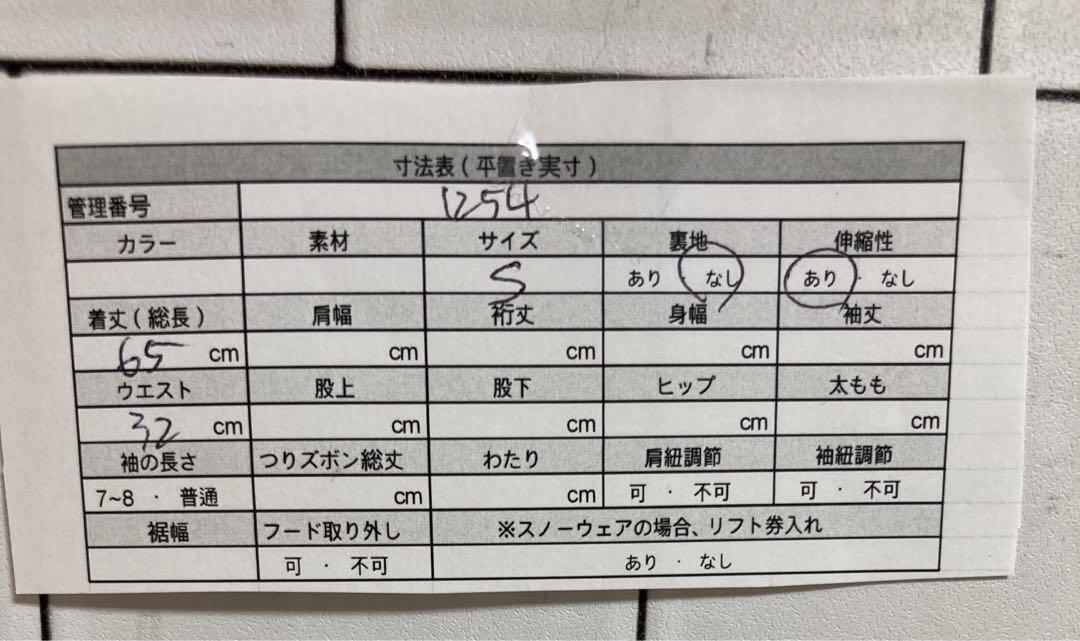 寸法表(平置き実寸)
管理番号 1254
カラー 素材 サイズ 裏地 伸縮性
S あり なし あり・なし
着丈(総長) 肩幅 裄丈 身幅 袖丈
65 cm cm cm cm cm
ウエスト 股上 股下 ヒップ 太もも
32 cm cm cm cm cm
袖の長さ つりズボン総丈 わたり 肩紐調節 袖紐調節
7~8・普通 cm cm 可・不可 可・不可
裾幅 フード取り外し ※スノーウェアの場合、リフト券入れ
可・不可 あり・なし